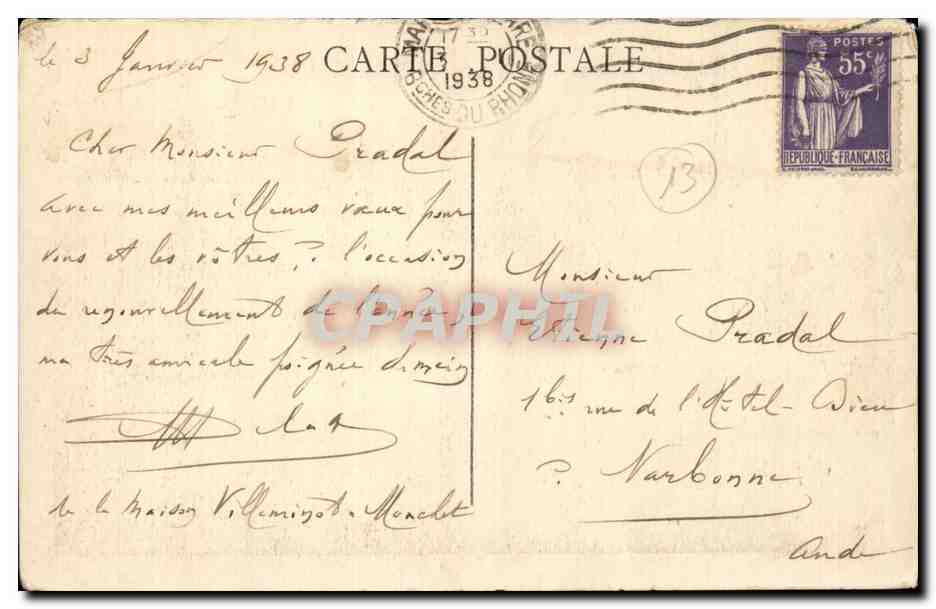 le 3 Janvier 1938
CARTE POSTALE
17 30
3
1938
BCHES DU RHONE
POSTES
55c
REPUBLIQUE-FRANCAISE
13
Cher Monsieur Pradal
avec mes meilleurs voeux pour
vous et les vôtres, à l'occasion
du renouvellement de l'année,
ma très amicale poignée de main
de la Maison Villeminot
CPAPHIL
Monsieur
Etienne Pradal
1bis rue de l'Hôtel-Dieu
à Narbonne
Aude